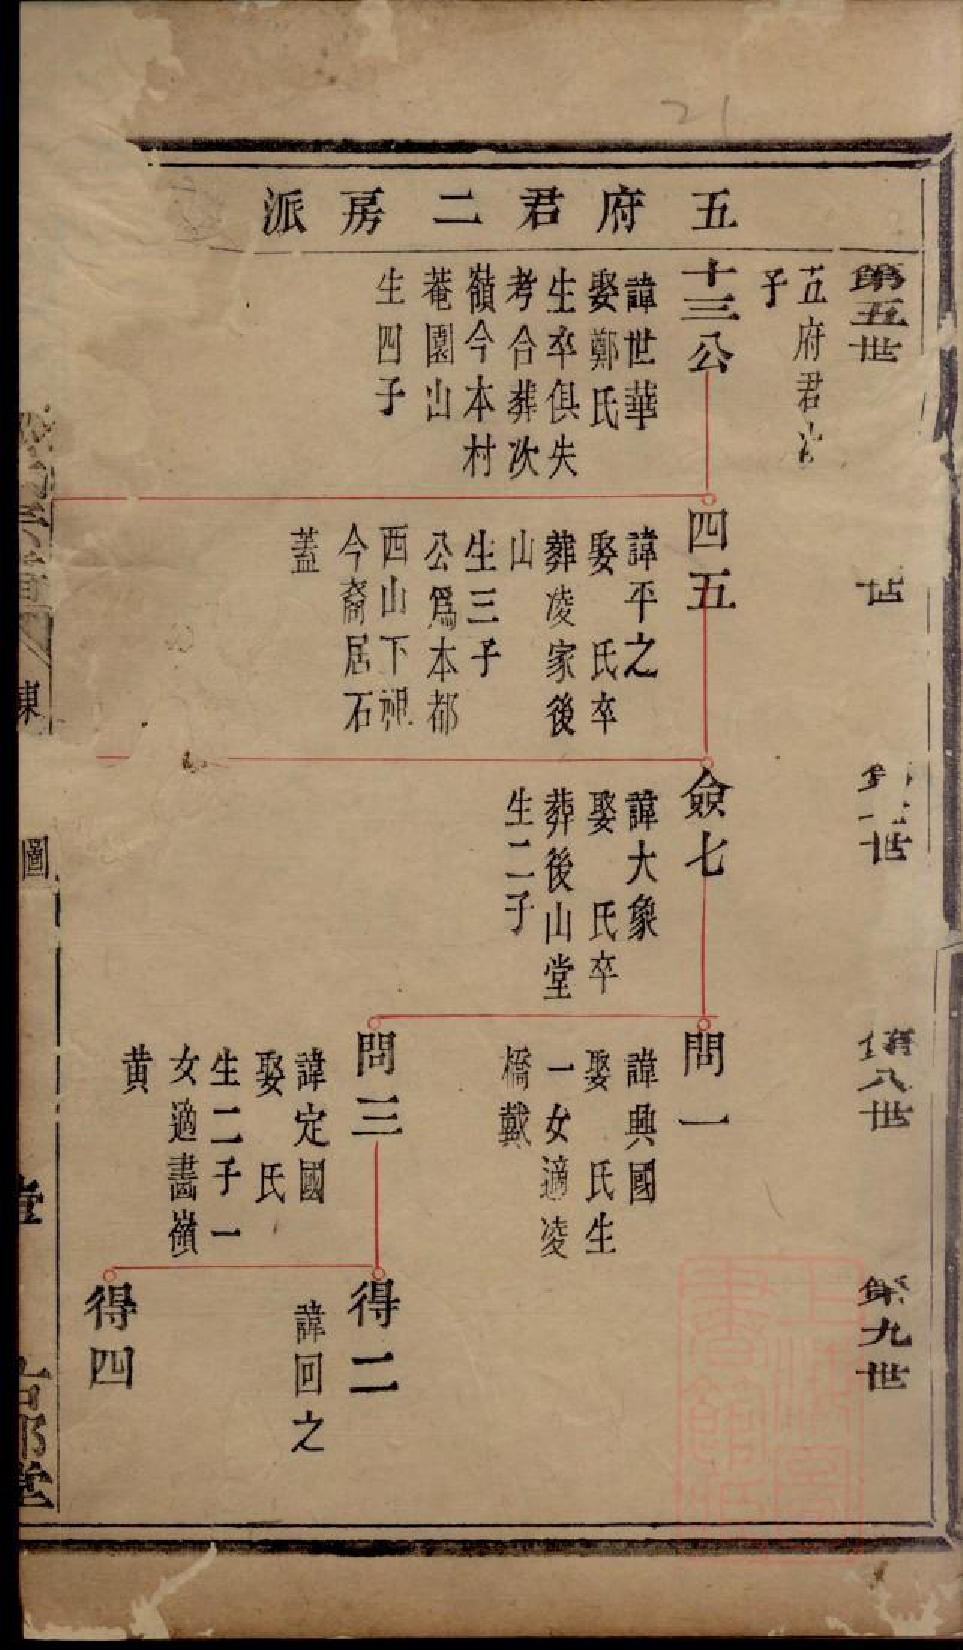 五府君二房派
第五世
五府君次
子
十三公
諱世華
娶鄭氏
生卒俱失
考合葬次
嶺今本村
菴園山
生四子
世
四五
諱平之
娶　氏卒
葬凌家後
山
生三子
公爲本都
西山下祖
今裔居石
蓋
世
僉七
諱大象
娶　氏卒
葬後山堂
生二子
第八世
問一
諱興國
娶　氏生
一女適凌
橋戴
問三
諱定國
娶　氏
生二子一
女適畫嶺
黄
第九世
得二
諱回之
得四
圖
堂